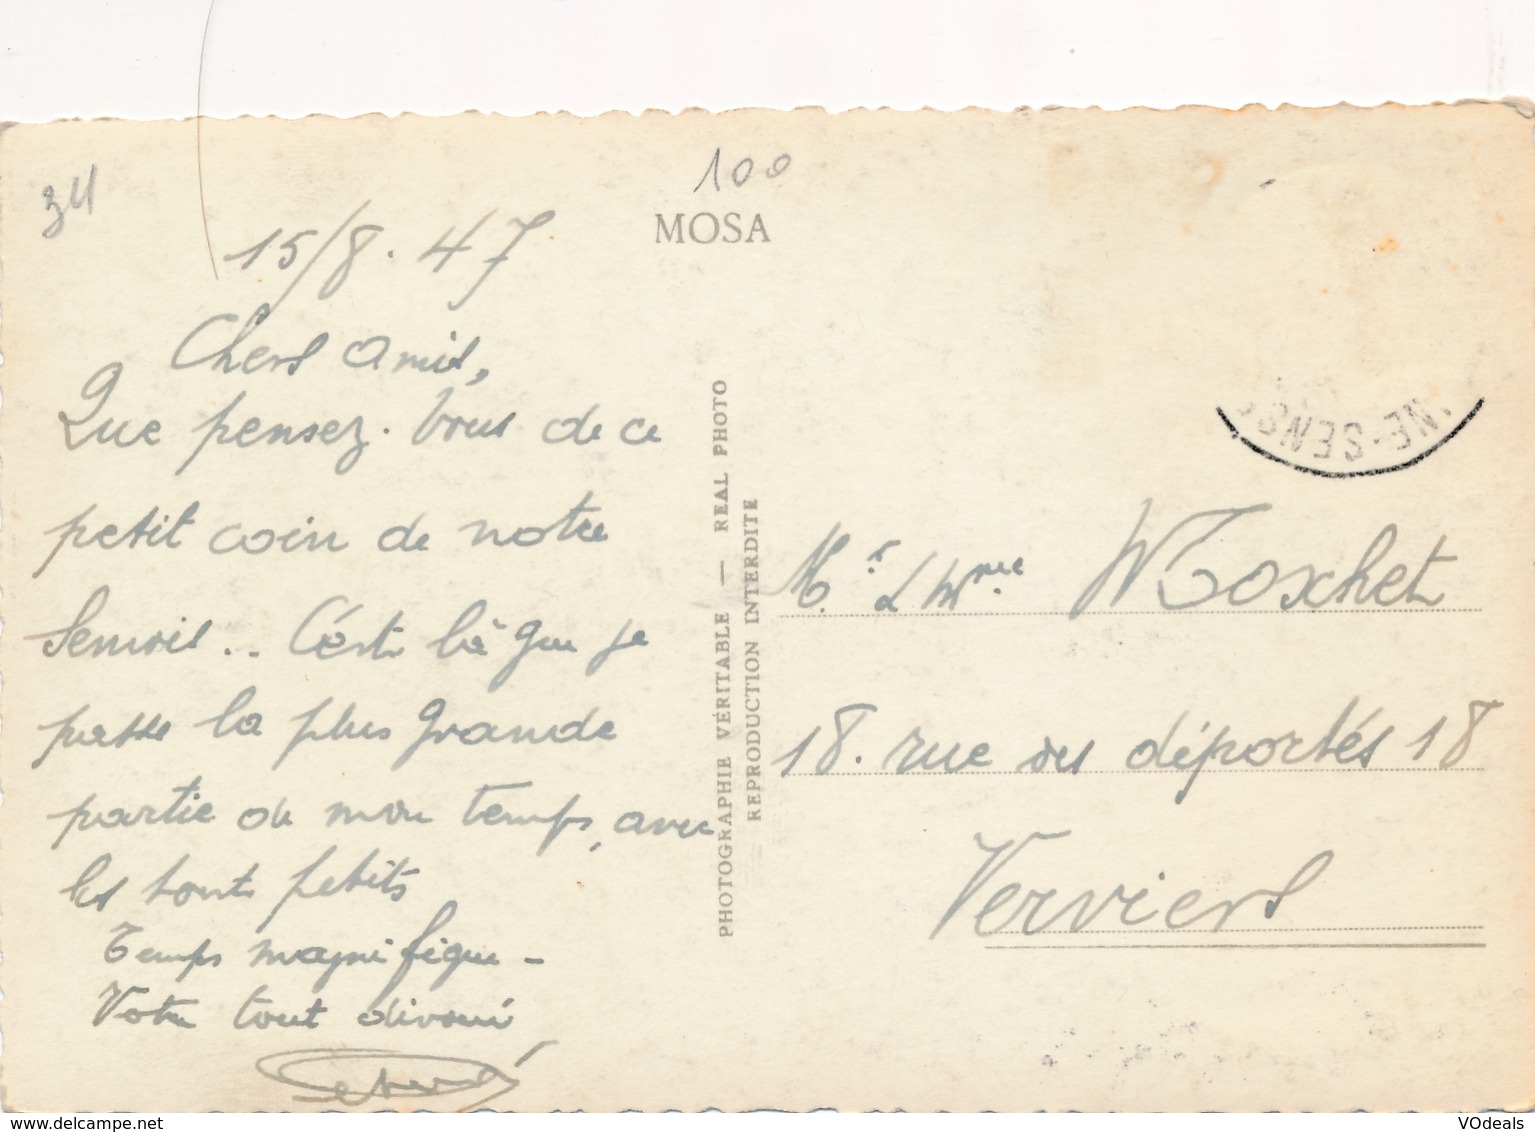 34
100
MOSA
15/8.47
Chers Amis,
Que pensez-vous de ce
petit coin de notre
Semois.. C'est là que je
passe la plus grande
partie de mon temps, avec
les tout petits
Temps magnifique -
Votre tout dévoué
PHOTOGRAPHIE VÉRITABLE — REAL PHOTO
REPRODUCTION INTERDITE
NE-SENS
Mr & Mme Moxhet
18. rue des déportés 18
Verviers
www.delcampe.net
VOdeals